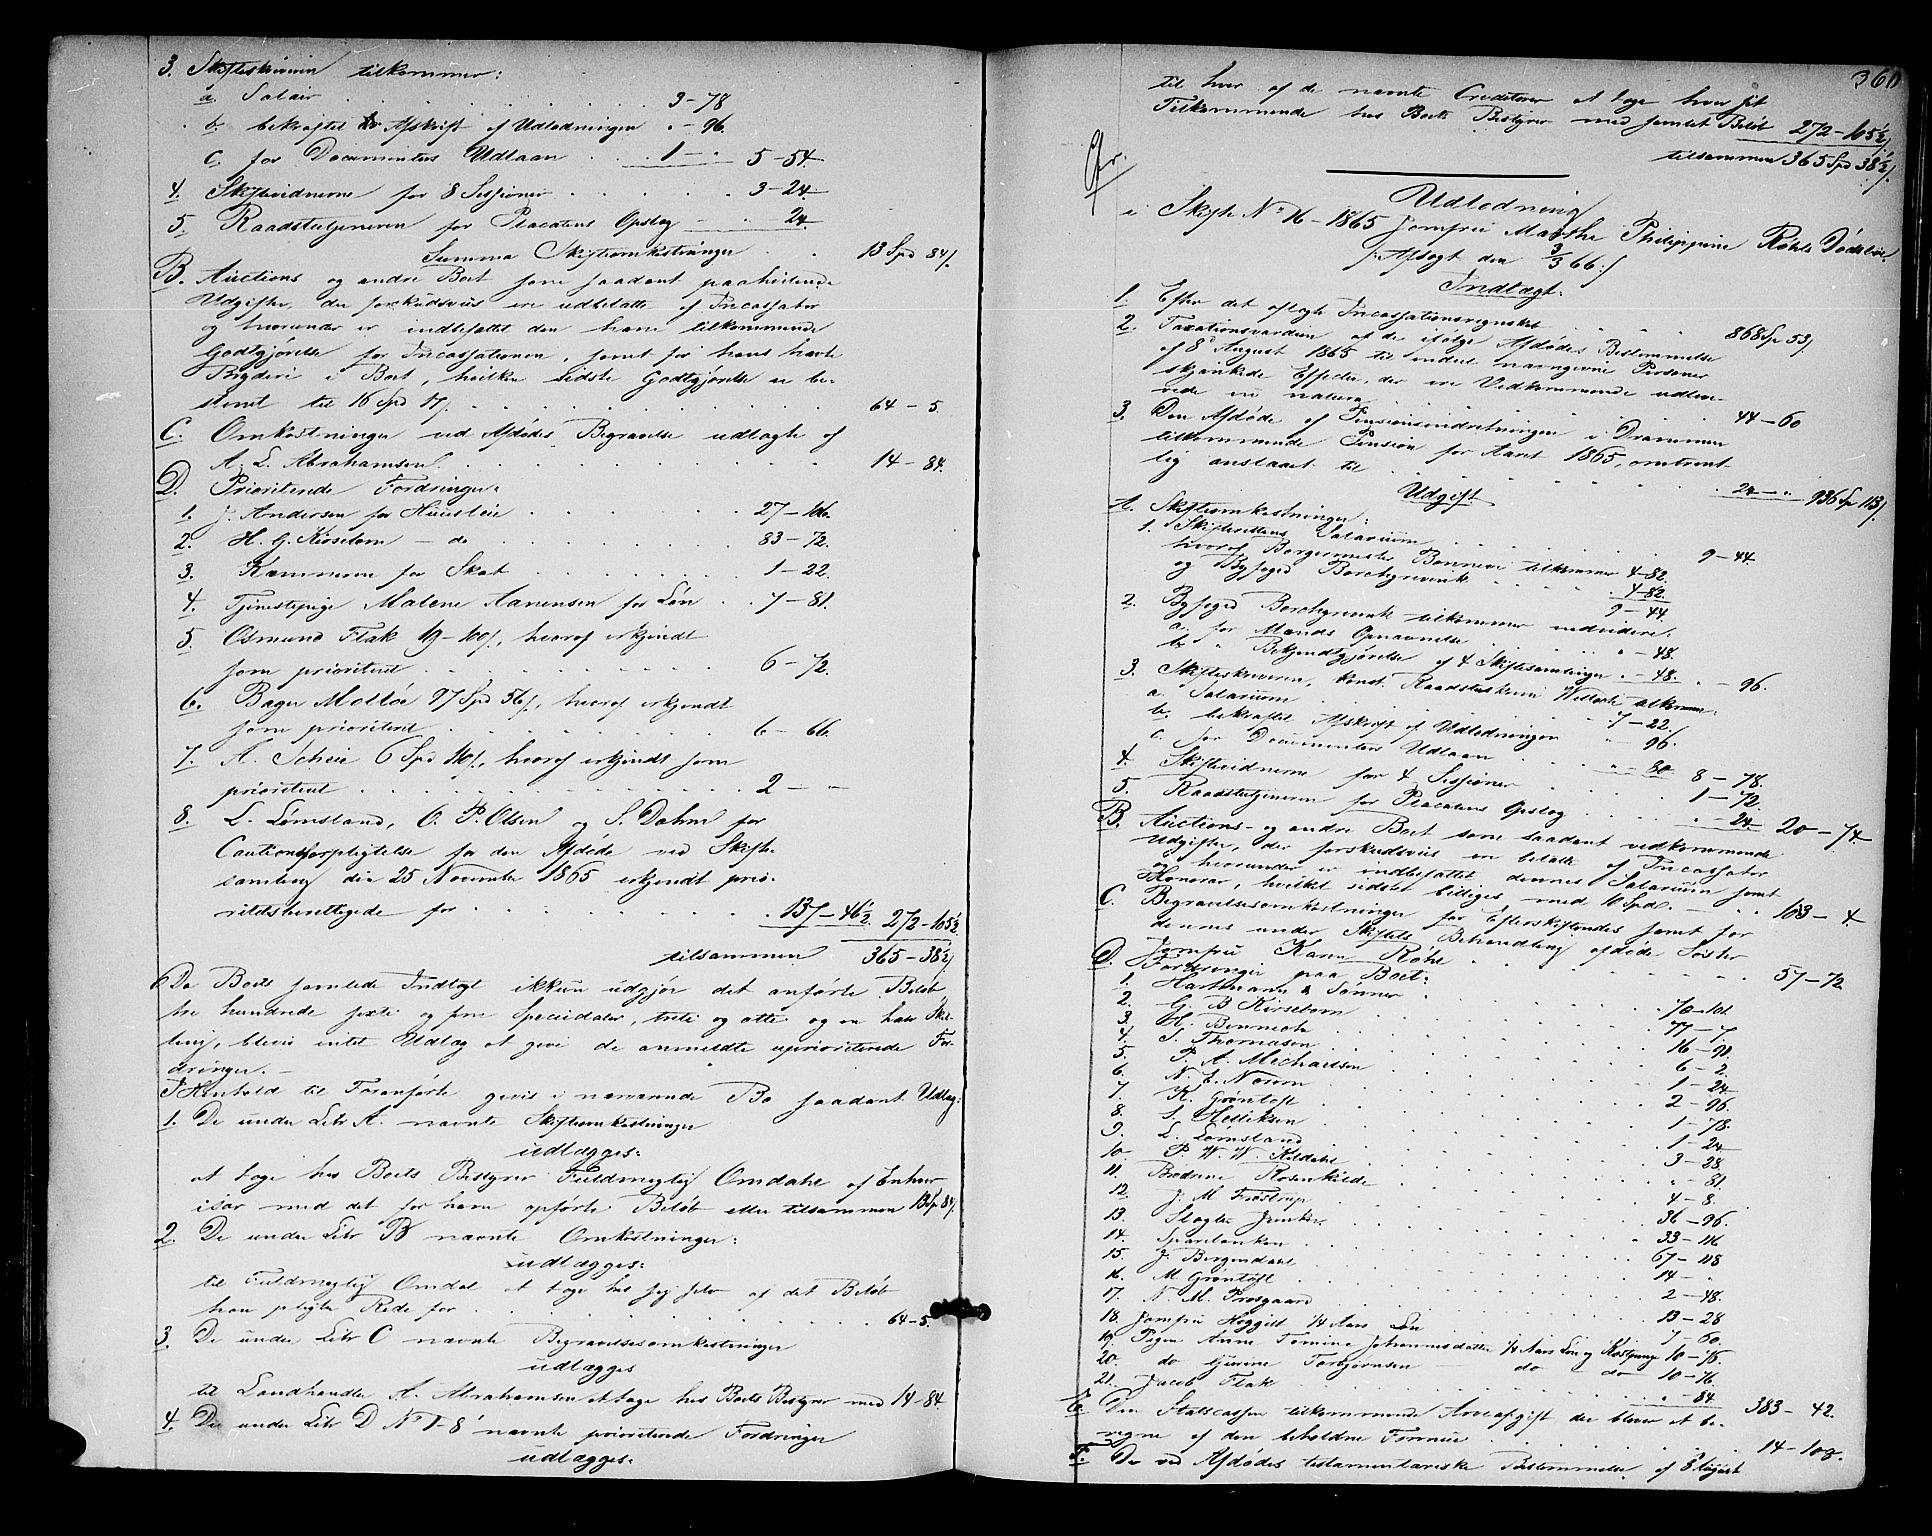 3. Skifteskriveren tilkommer:
a. Salair . . . 3-78
b. bekræftet Afskrift af Udlodningen " - 96.
c. for Documenters Udlaan . . 1 - " 5-54.
4. Skiftevidnerne for 8 Sessioner . . . 3-24.
5. Raadstutjeneren for Placatens Opslag — " 24.
Summa Skifteomkostninger . . 13 Spd 84/.
B. Auctions og andre Boet som saadant paahvilende
Udgifter, der forskudsviis ere udbetalte af Incassator
og hvorunder er indbefattet den ham tilkommende
Godtgjørelse for Incassationen, samt for hans havte
Bryderi i Boet, hvilken sidste Godtgjørelse er be-
stemt til 16 Spd 17/. . . . 64-5.
C. Omkostninger ved Afdødes Begravelse udlagte af
A. L. Abrahamsen . . . 14-84.
D. Prioriterede Fordringer:
1. J. Andersen for Huusleie . . . 27-106.
2. H. G. Kirsebom — do . . . 83-72.
3. Kæmneren for Skat . . . 1-22.
4. Tjenestepige Malene Aanensen for Løn . . 7-81.
5. Osmund Flak 19-100/, hvoraf erkjendt
som prioriteret . . . 6-72.
6. Bager Moltke 27 Spd 56/, hvoraf erkjendt
som prioriteret . . . 6-66.
7. A. Scheie 6 Spd 110/, hvoraf erkjendt som
prioriteret . . . 2 - "
8. L. Lømsland, O. P. Olsen og S. Dahm for
Cautionsforpligtelse for den Afdøde ved Skifte-
samling den 25 November 1865 erkjendt prio-
ritetsberettigede for . . . 137-46½. 272-105½.
tilsammen 365-38½/.
Da Boets samlede Indtægt ikkun udgjør det anførte Beløb
tre hundrede sexti og fem Speciedaler, treti og otte og en halv Skil-
ling, bliver intet Udlæg at give de anmeldte uprioriterede For-
dringer. —
I Henhold til Foranførte gives i nærværende Bo saadant Udlæg:
1. De under Litr A. nævnte Skifteomkostninger
udlægges:
at tage hos Boets Bestyrer Fuldmægtig Omdahl af Enhver
især med det for ham opførte Beløb eller tilsammen 13 Sp 84/.
2. De under Litr B nævnte Omkostninger:
udlægges:
til Fuldmægtig Omdal at tage hos sig selv af det Beløb
han pligter Rede for . . . 64-5.
3. De under Litr C nævnte Begravelsesomkostninger
udlægges
til Landhandler A. Abrahamsen at tage hos Boets Bestyrer med 14-84.
4. De under Litr D No 1-8 nævnte prioriterede Fordringer
udlægges:
360
til hver af de nævnte Creditorer at tage hver sit
Tilkommende hos Boets Bestyrer med samlet Beløb 272-105½/.
tilsammen 365 Spd 38½/.
Udlodning
i Skifte No 16-1865 Jomfru Marthe Philippine Røhls Dødsbo.
/: Afsagt den 3/3 66 :/
Indtægt:
1. Efter det aflagte Incassationsregnskab . . . 868 Sp 53/.
2. Taxationsværdien af de ifølge Afdødes Bestemmelse
af 8 August 1865 til endeel navngivne Personer
skjænkede Effecter, der ere Vedkommende udleve-
rede in natura . . . 44-60
3. Den Afdøde af Pensionsindretningen i Drammen
tilkommende Pension for Aaret 1865, omtrent-
lig anslaaet til . . . 24-" 936 Sp 113/.
Udgift
A. Skifteomkostninger:
1. Skifterettens Salarium . . . 9-44.
hvoraf Borgermester Bonnevie tilkommer 4-82.
og Byfoged Borchgrevink . . . 4-82.
9-44.
2. Byfoged Borchgrevink tilkommer endvidere:
a. for Mænds Opnævnelse . . . "-48.
b. " Bekjendtgjørelse af 4 Skiftesamlinger "-48. "-96.
3. Skifteskriveren, const. Raadstueskriver tilkommer:
a. Salarium . . . 7-22.
b. bekræftet Afskrift af Udlodningen " 96.
c. for Documenters Udlaan . . . "-80 8-78.
4. Skiftevidnerne for 4 Sessioner . . . 1-72.
5. Raadstutjeneren for Placatens Opslag . . . "-24. 20-74.
B. Auctions- og andre Boet som saadant vedkommende
Udgifter, der forskudsviis ere betalte af Incassator
og hvorunder er indbefattet dennes Salarium samt
Honorar, hvilket sidste billiges med 10 Spd. . . . 103-4.
C. Begravelsesomkostninger for Efterskiftendes samt for
dennes under Skiftets Behandling afdøde Søster
Jomfru Karen Røhl . . . 57-72
D. Fordringer paa Boet:
1. Hartmann & Sønner . . . 70-101
2. G. B Kirsebom . . . 77-7.
3. H. Bennecke . . . 16-91.
4. S. Thomason . . . 6-2.
5. P. A. Mechaelsen . . . 1-24
6. N. E. Norum . . . 2-96.
7. K. Grøntoft . . . 1-78.
8. S. Hetliksen . . . 1-24
9. L. Lømsland . . . 3-28
10. P. W. W. Kildahl . . . "-81.
11. Brødrene Rosenkilde . . . 4-8.
12. J. M. Frøstrup . . . 36-96.
13. Slagter Juncker . . . 33-116
14. Sparebanken . . . 67-118
15. J. Bergendahl . . . 14-"
16. M Grøntoft . . . 2-48.
17. N. M. Prosgaard . . . 13-28
18. Jomfru Heggist ¼ Aars Løn . . . 7-60.
19. Pigen Anne Tomine Johannesdatter ¼ Aars Løn og Kostpenge 10-76.
20. do Gjurine Torbjørnsen do do 10-76.
21. Jacob Flak . . . "-84. 383-42.
E. Den Statscassen tilkommende Arveafgift der bliver at be-
regne af den beholdne Formue . . . 14-108.
F. De ved Afdødes testamentariske Bestemmelse af 8 August